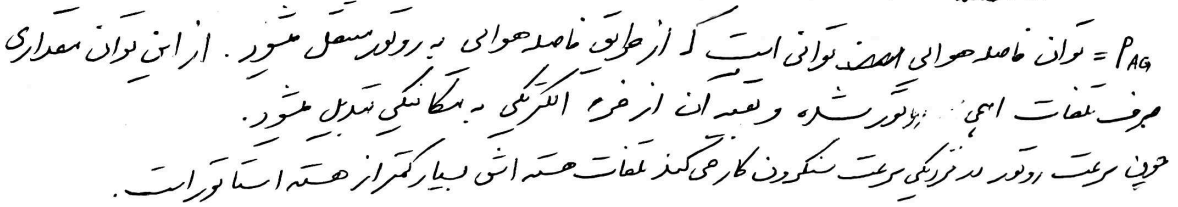 P_AG = توان فاصله هوایی توانی است که از طریق فاصله هوایی به روتور منتقل میشود. از این توان مقداری
صرف تلفات اهمی روتور شده و بقیه آن از فرم الکتریکی به مکانیکی تبدیل میشود.
چون سرعت روتور در نزدیکی سرعت سنکرون کار می کند تلفات هسته اش بسیار کمتر از هسته استاتور است.